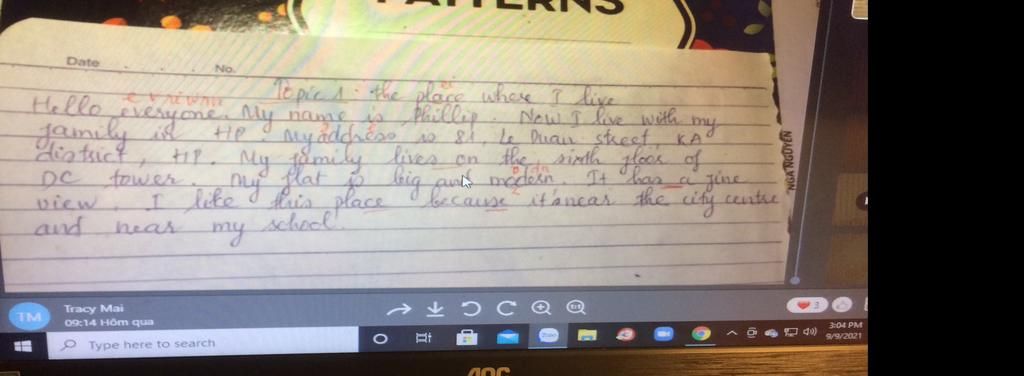 PATTERNS
Date
No.
Topic 1: the place where I live
Hello everyone. My name is Phillip. Now I live with my
family in HP. My address is 81, Le Duan street, KA
district, HP. My family lives on the sixth floor of
DC tower. My flat is big and modern. It has a fine
view. I like this place because it's near the city centre
and near my school.
NGA NGUYEN
TM
Tracy Mai
09:14 Hôm qua
1:1
3
Type here to search
Zalo
3:04 PM
9/9/2021
AOC